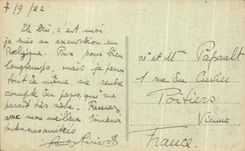 7/9/22
Eh Oui, c'est moi
je suis en excursion en
Belgique. Pas pour bien
longtemps, mais je peux
tout de même me rendre
compte du pays, qui me
parait très
avec mon meilleur souvenir
et Mme Papault
1 rue du Cuvier
Poitiers
Vienne
France.